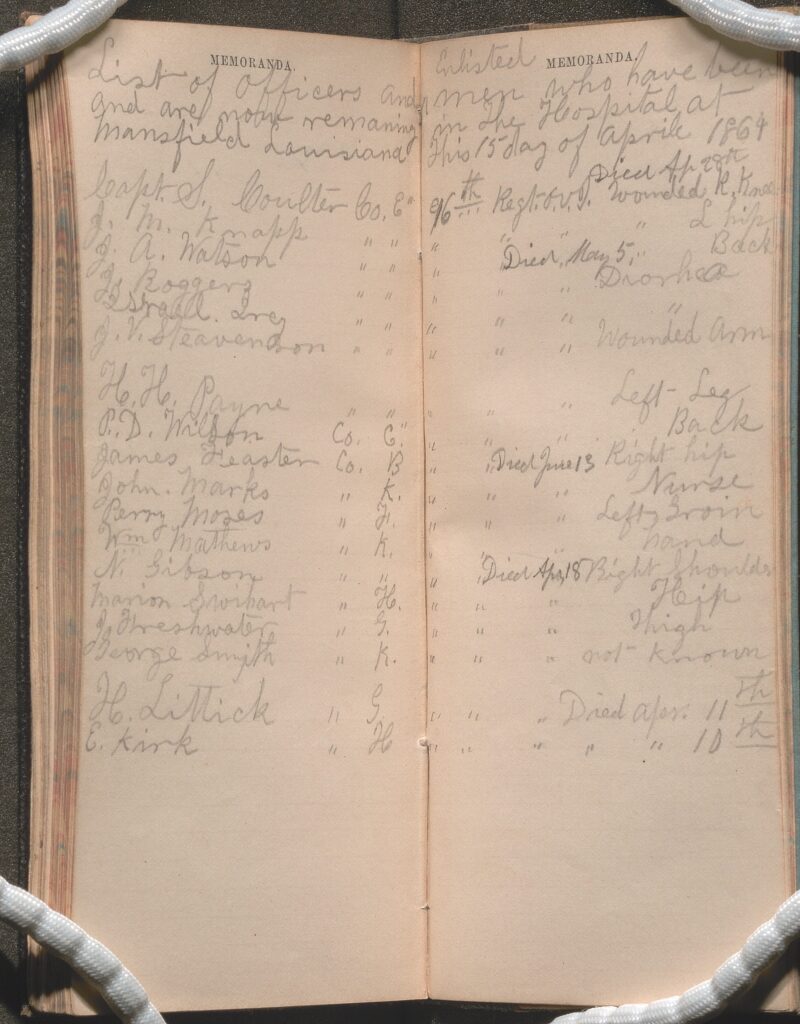 MEMORANDA. MEMORANDA.
List of officers and Enlisted men who have been
and are now remaning in the Hospital at
Mansfield Louisiana This 15 day of Aprile 1864
Died Ap 28th
Capt. S. Coulter Co. E" 96th Regt. O.V.I. Wounded R. Knee
J. M. Knapp " " " " " " L hip
J. A. Watson " " " Died, May 5, " Back
J. Roggers " " " " " Diorhea
Israell. " " " " " "
J. V. Steavenson " " " " " Wounded Arm
H. H. Payne " " " " " Left-Leg
P. D. Wilson Co. C." " " " Back
James Feaster Co. B " " Died June 13 Right hip
John. Marks " K. " " " Nurse
Perry Moses " H. " " " Left Groin
Wm Mathews " K. " " " hand
N. Gibson " " " " Died Apr, 18 Right Shoulder
Marion Swihart " H. " " " Hip
J. Freshwater " G. " " " Thigh
George Smith " K. " " " not Known
H. Littick " G " " " Died apr. 11th
E. Kirk " H " " " " " 10th